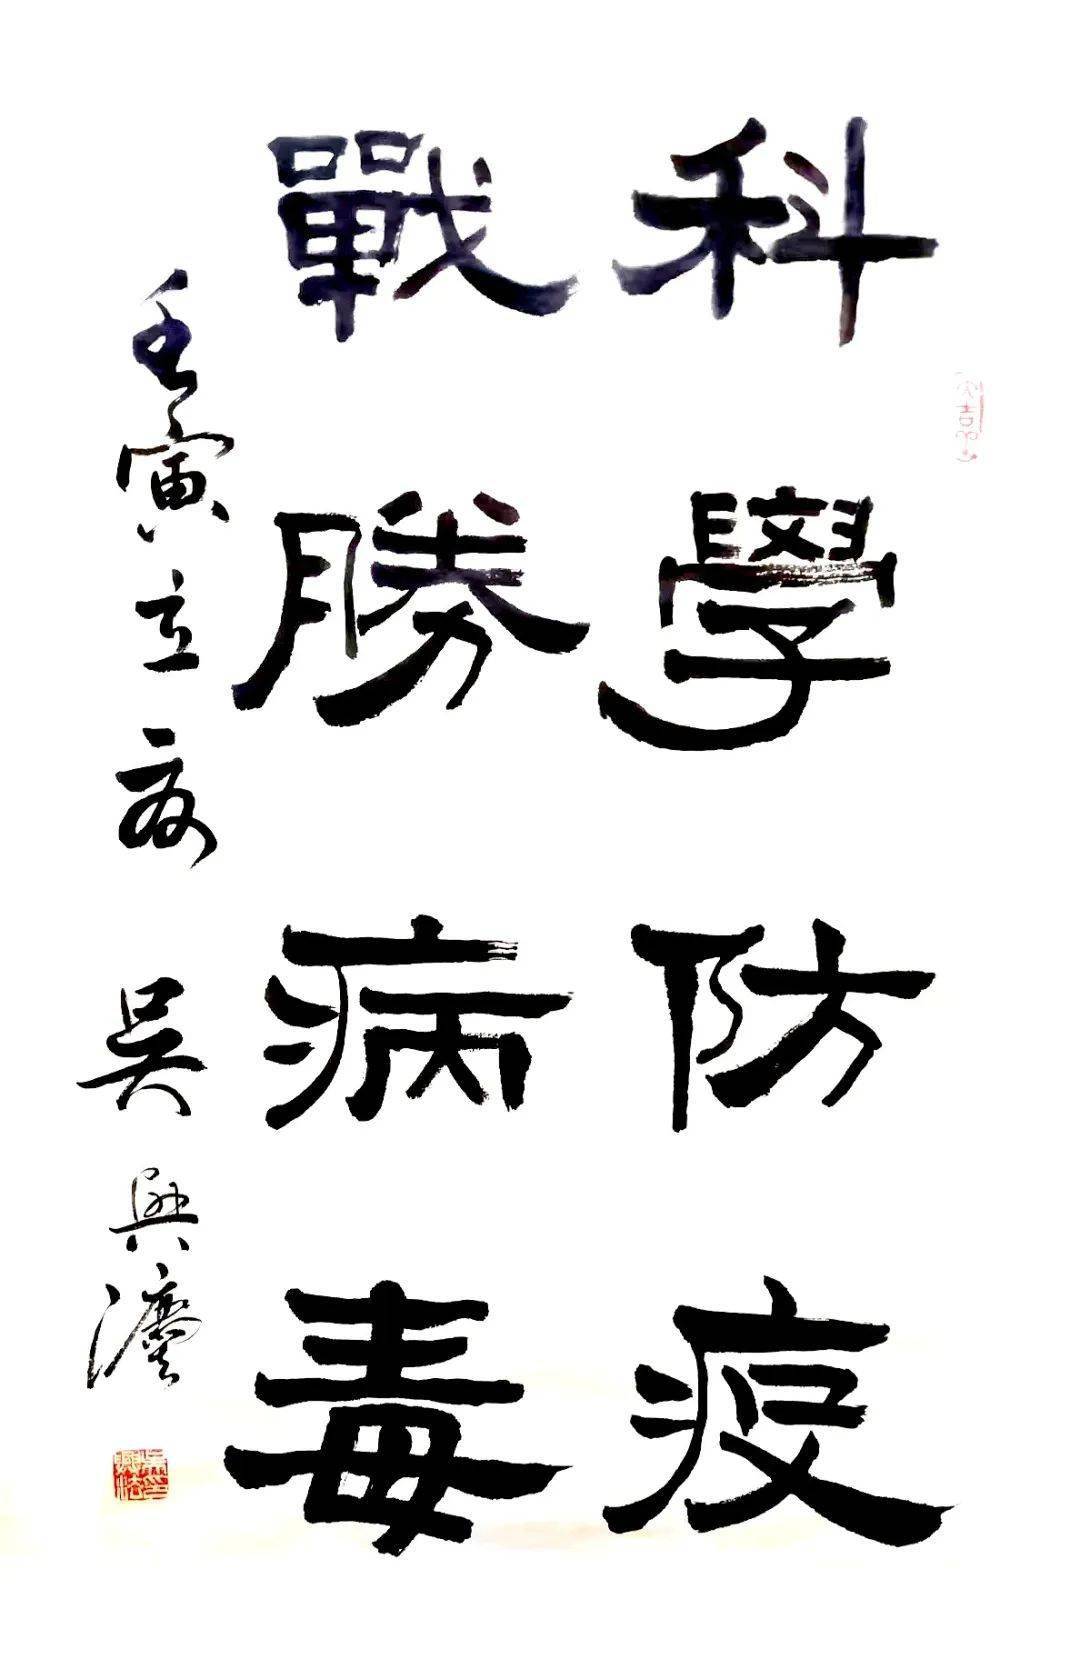 科學防疫
戰勝病毒
壬寅立夏 吴興灋